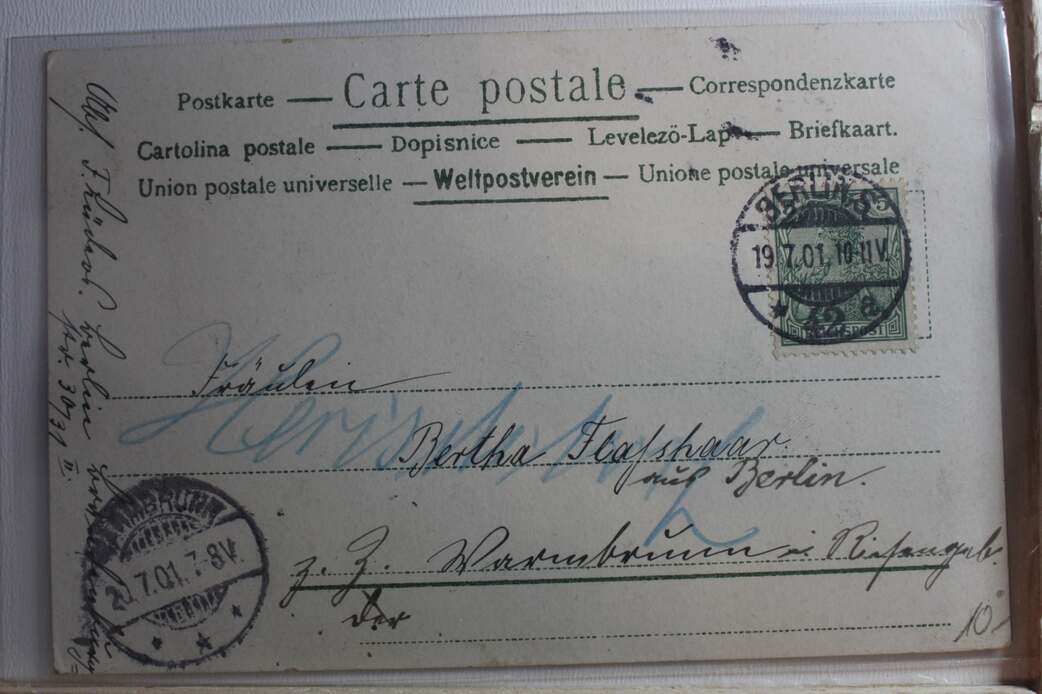 Postkarte — Carte postale — Correspondenzkarte
Cartolina postale — Dopisnice — Levelezö-Lap — Briefkaart.
Union postale universelle — Weltpostverein — Unione postale universale
BERLIN, S.
19.7.01, 10-11V.
* 42 a.
5
REICHSPOST
Fräulein
Bertha Flaßhaar
aus Berlin.
z. Z. Warmbrunn i. Riesengeb.
der
WARMBRUNN
7.01. 7-8V.
Abs. F.
Berlin
30/31 II.
10